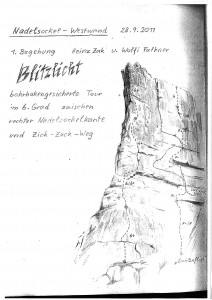 Nadelsockel - Westwand 28.9.2011
1. Begehung Heinz Zak u. Wolfi Falkner
Blitzlicht
bohrhakengesicherte Tour
im 6. Grad zwischen
rechter Nadelsockelkante
und Zick-Zack-Weg